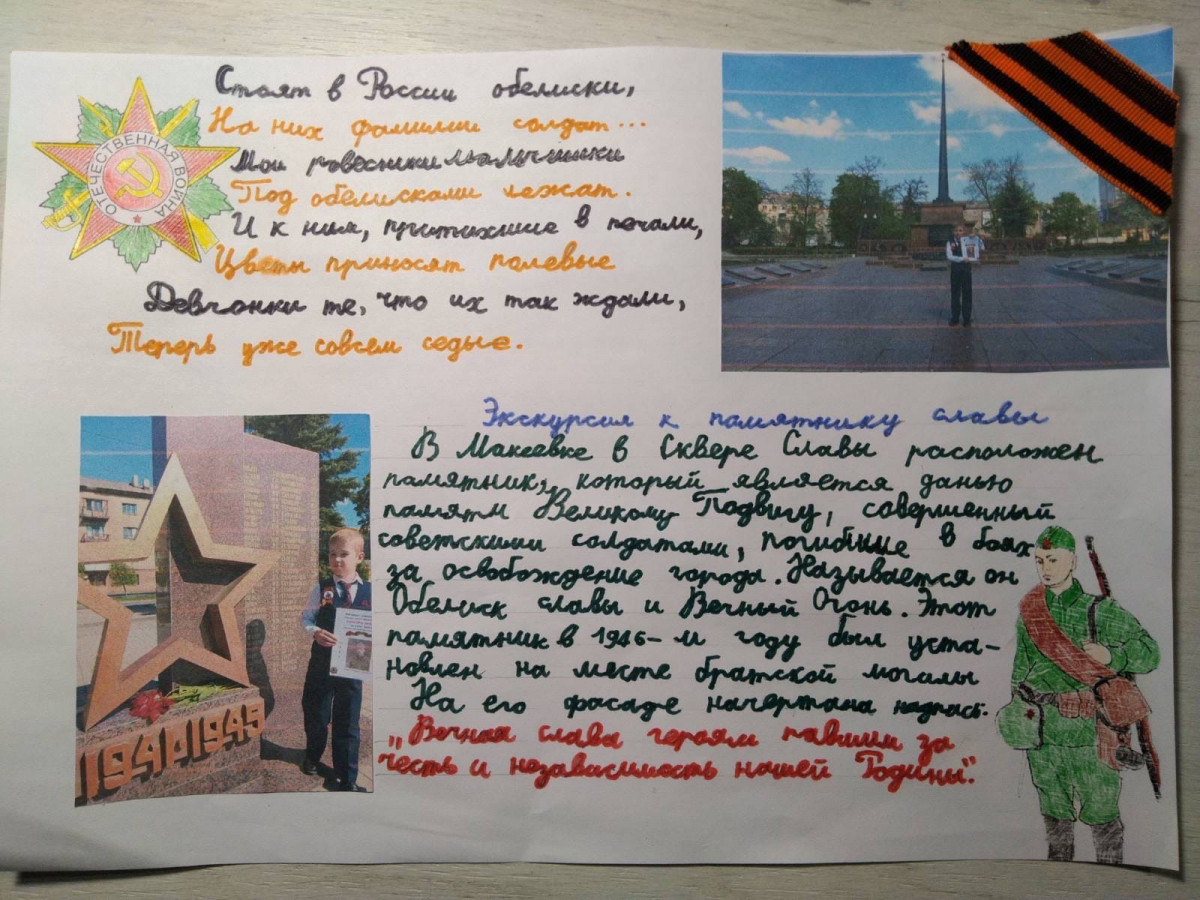 ОТЕЧЕСТВЕННАЯ ВОЙНА
Стоят в России обелиски,
На них фамилии солдат...
Мои ровесники мальчишки
Под обелисками лежат.
И к ним, притихшие в печали,
Цветы приносят полевые
Девчонки те, что их так ждали,
Теперь уже совсем седые.
Экскурсия к памятнику славы
В Макеевке в Сквере Славы расположен
памятник, который является данью
памяти Великому Подвигу, совершенный
советскими солдатами, погибшие в боях
за освобождение города. Называется он
Обелиск славы и Вечный Огонь. Этот
памятник в 1946-м году был уста-
новлен на месте братской могилы
На его фасаде начертана надпись.
„Вечная слава героям павшим за
честь и независимость нашей Родины".
1941 1945